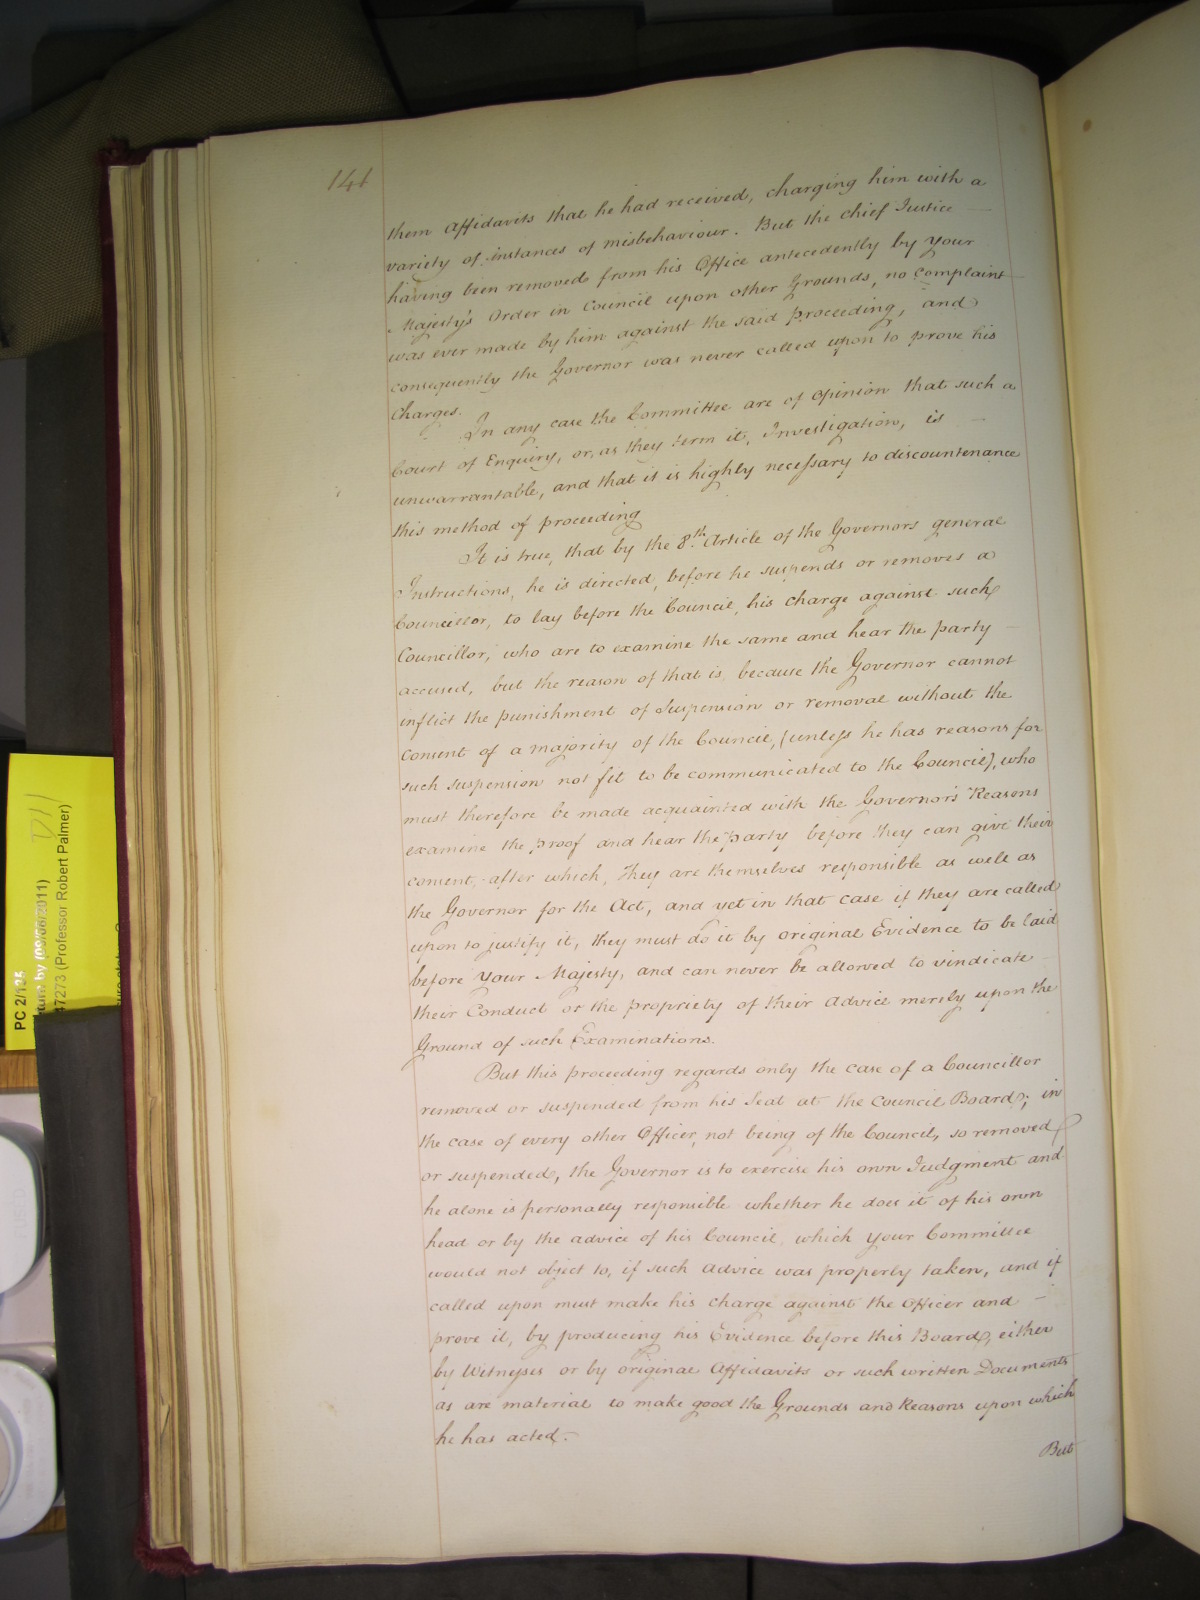 141
them Affidavits that he had received, charging him with a
variety of instances of misbehaviour. But the chief Justice
having been removed from his Office antecedently by your
Majesty's Order in Council upon other Grounds, no complaint
was ever made by him against the said proceeding, and
consequently the Governor was never called upon to prove his
charges.
In any case the Committee are of Opinion that such a
Court of Enquiry, or, as they term it, Investigation, is
unwarrantable, and that it is highly necessary to discountenance
this method of proceeding
It is true, that by the 8th Article of the Governors general
Instructions, he is directed, before he suspends or removes a
Councillor, to lay before the Council, his charge against such
Councillor, who are to examine the same and hear the party
accused, but the reason of that is, because the Governor cannot
inflict the punishment of Suspension or removal without the
consent of a majority of the Council, (unless he has reasons for
such suspension not fit to be communicated to the Council), who
must therefore be made acquainted with the Governor's Reasons
examine the proof and hear the party before they can give their
consent, after which, They are themselves responsible as well as
the Governor for the Act, and yet in that case if they are called
upon to justify it, they must do it by original Evidence to be laid
before your Majesty, and can never be allowed to vindicate
their Conduct or the propriety of their Advice merely upon the
Ground of such Examinations.
But this proceeding regards only the case of a Councillor
removed or suspended from his Seat at the Council Board; in
the case of every other Officer, not being of the Council, so removed
or suspended, the Governor is to exercise his own Judgment and
he alone is personally responsible whether he does it of his own
head or by the advice of his Council, which your Committee
would not object to, if such Advice was properly taken, and if
called upon must make his charge against the Officer and
prove it, by producing his Evidence before this Board, either
by Witnesses or by original Affidavits or such written Documents
as are material to make good the Grounds and Reasons upon which
he has acted.
But
PC 2/125
by (09/56/2011)
47273 (Professor Robert Palmer)